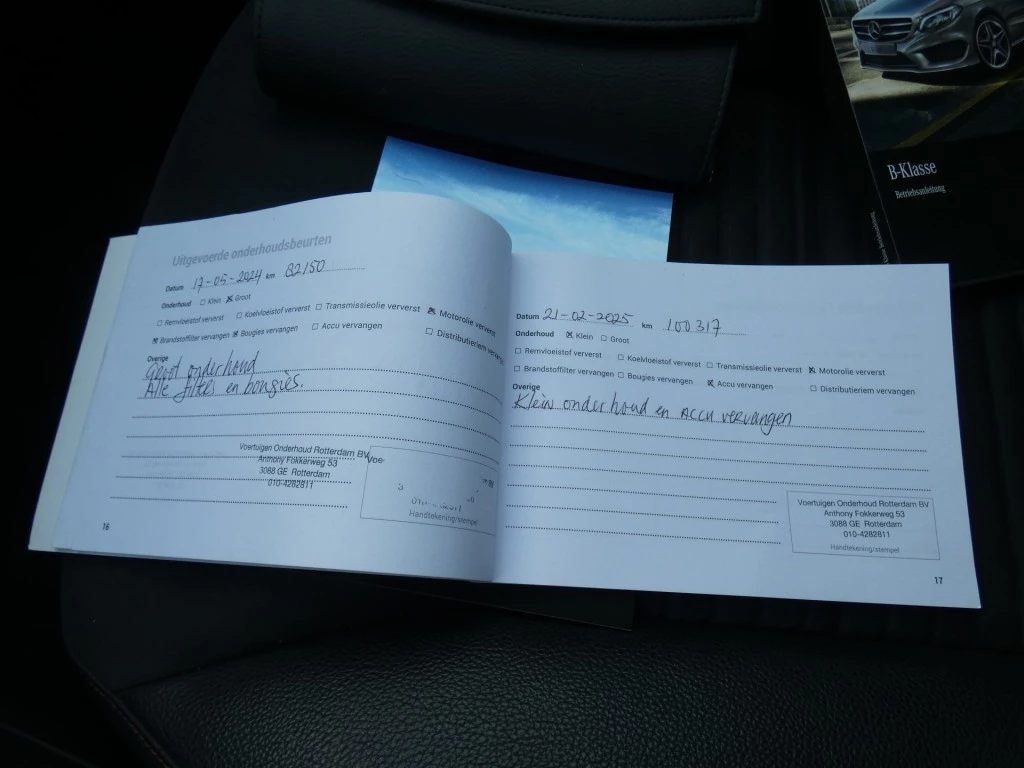 B-Klasse
Betriebsanleitung
Uitgevoerde onderhoudsbeurten
Datum 17-05-2024 km 82150
Onderhoud Klein Groot
Remvloeistof ververst Koelvloeistof ververst Transmissieolie ververst Motorolie ververst
Brandstoffilter vervangen Bougies vervangen Accu vervangen Distributieriem vervangen
Overige
Groot onderhoud
Alle filters en bougies.
Voertuigen Onderhoud Rotterdam BV
Anthony Fokkerweg 53
3088 GE Rotterdam
010-4282811
Voe
Handtekening/stempel
16
Datum 21-02-2025 km 100317
Onderhoud Klein Groot
Remvloeistof ververst Koelvloeistof ververst Transmissieolie ververst Motorolie ververst
Brandstoffilter vervangen Bougies vervangen Accu vervangen Distributieriem vervangen
Overige
Klein onderhoud en ACCU vervangen
Voertuigen Onderhoud Rotterdam BV
Anthony Fokkerweg 53
3088 GE Rotterdam
010-4282811
Handtekening/stempel
17